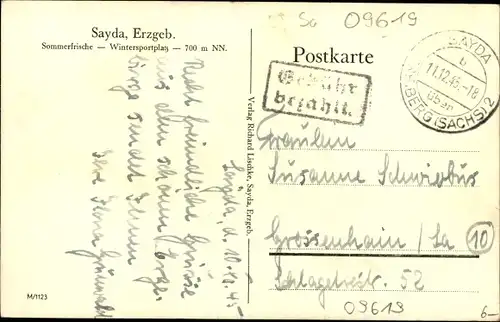 Sa 09619
Sayda, Erzgeb.
Sommerfrische — Wintersportplatz — 700 m NN.
Postkarte
Gebühr
bezahlt.
SAYDA
b
11.12.45.-18
über
BERG (SACHS) 2
Sayda, d. 10.12.45.
Recht freundliche Grüsse
aus dem schönen Erzge-
birge sendet Ihnen
Ihre
Verlag Richard Lischke, Sayda, Erzgeb.
Fräulein
Susanne Schwiebus
Grossenhain / Sa
10
Schlageterstr. 52
09619
M/1123
6-